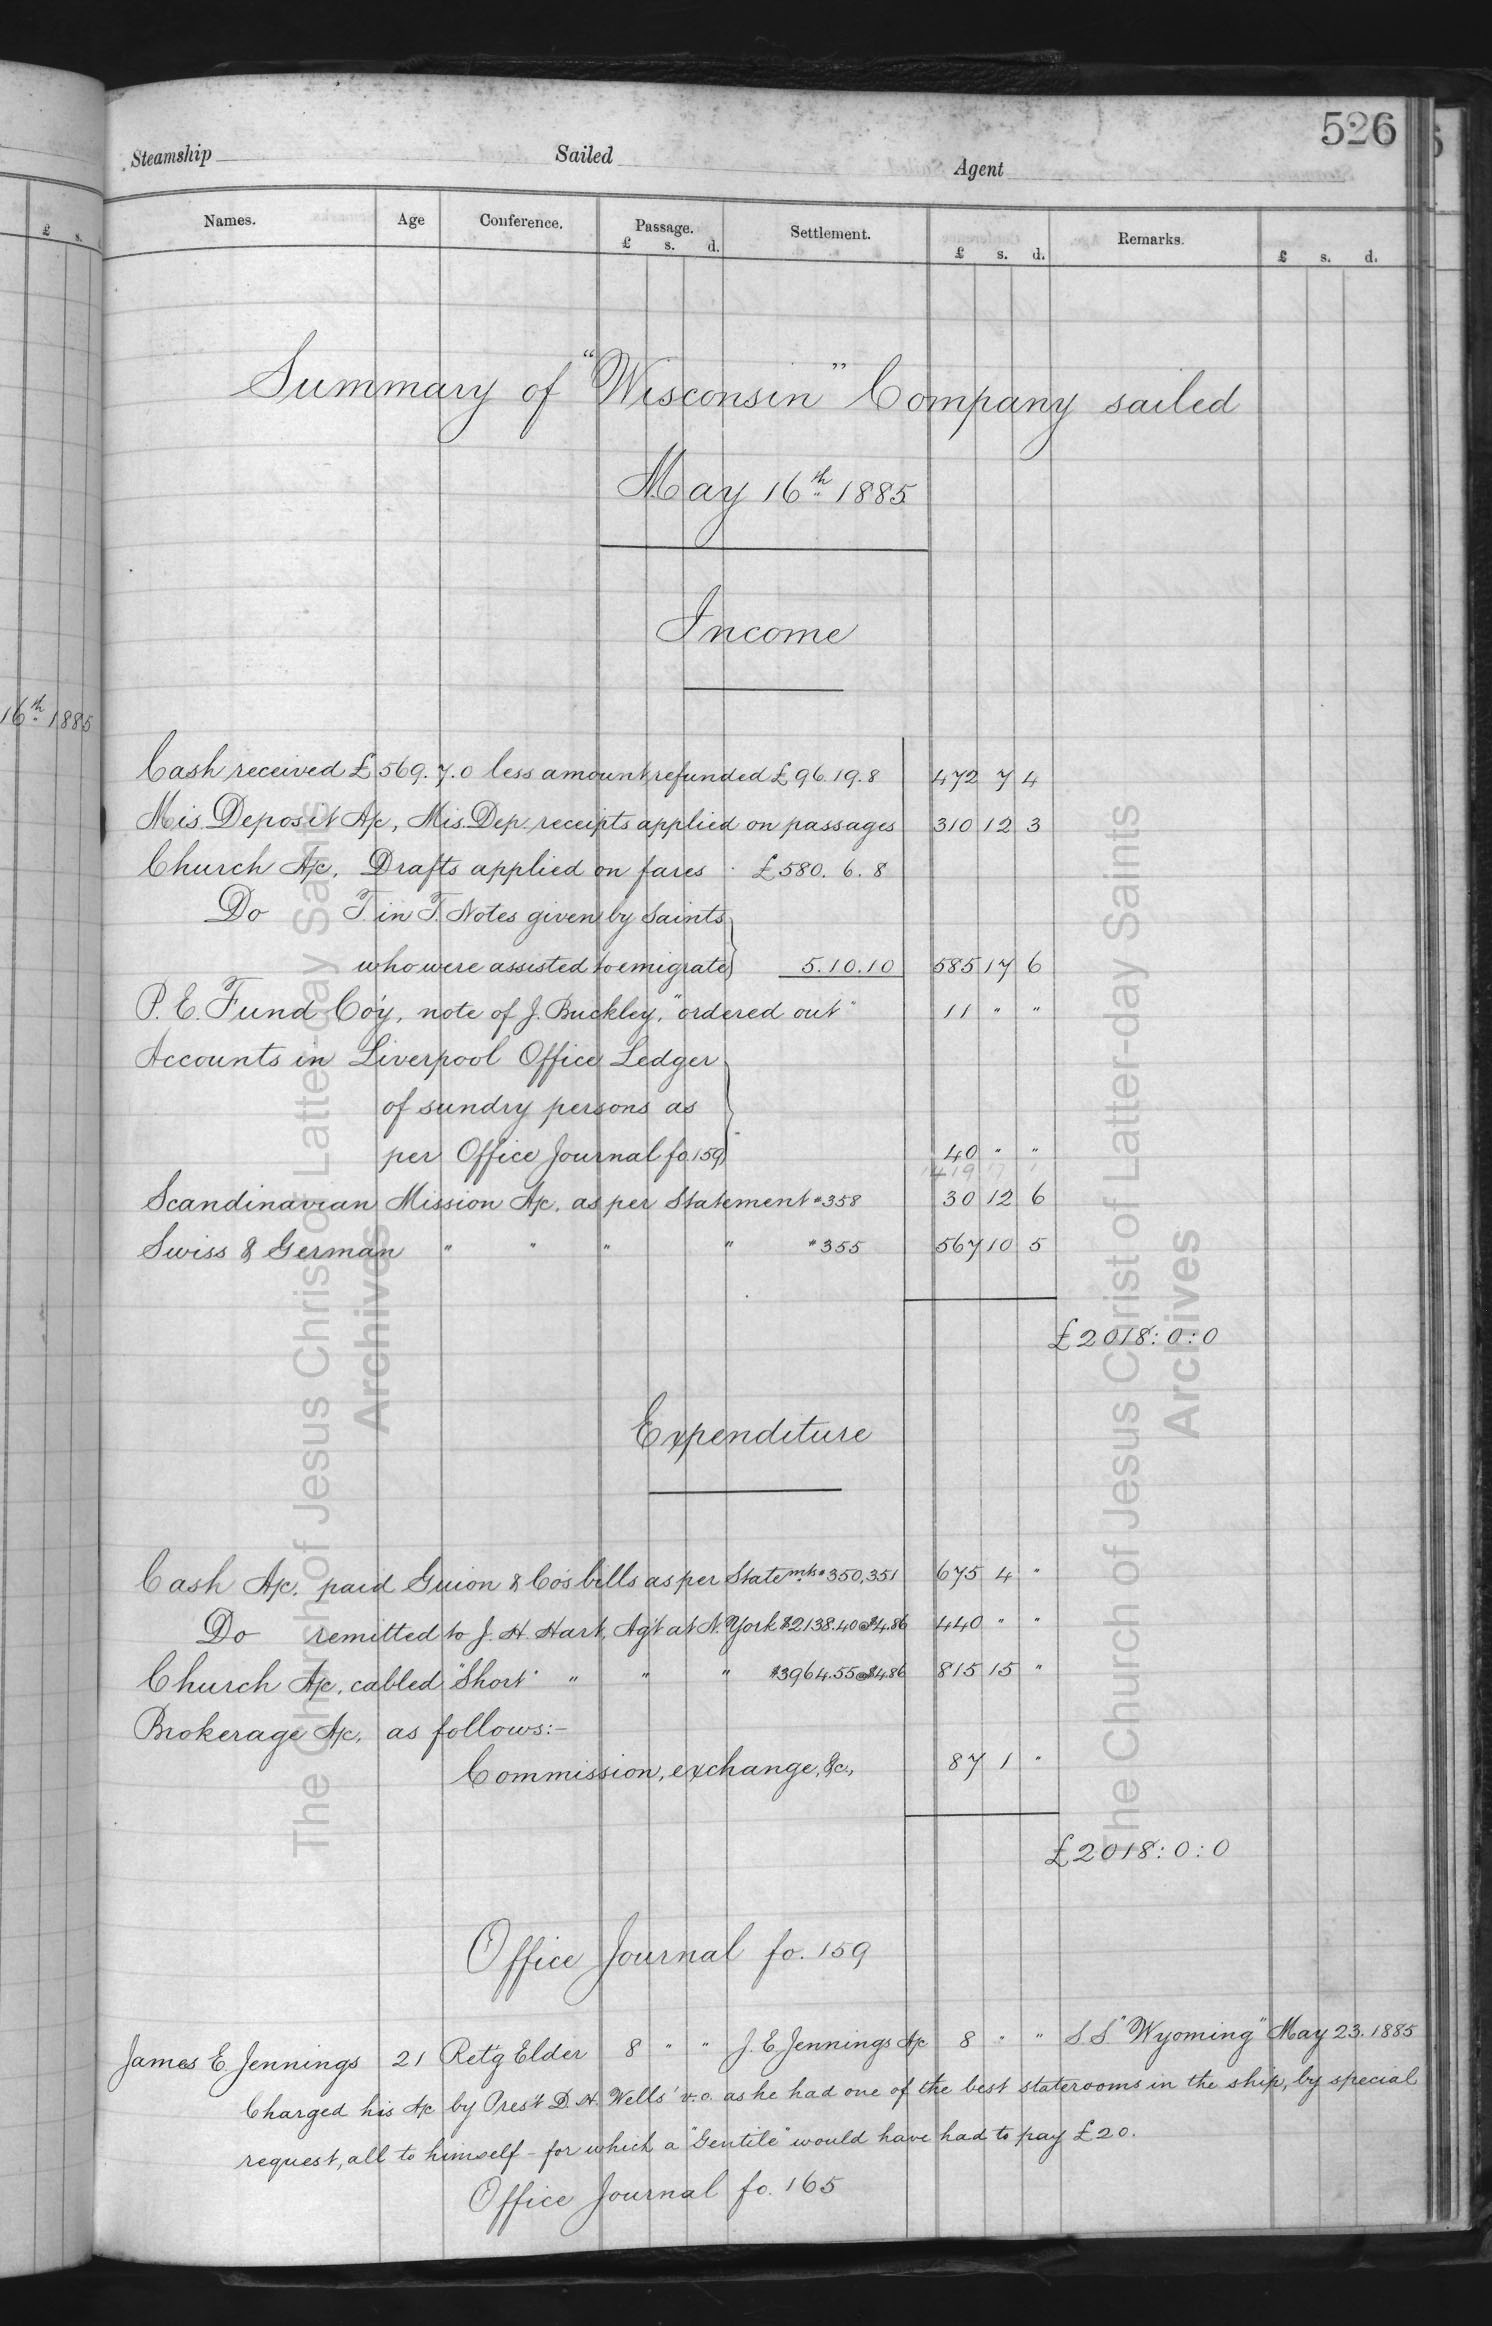 526
Steamship Sailed Agent
Names. Age Conference. Passage. Settlement. Remarks.
£ s. d. £ s. d. £ s. d.
£ s.
Summary of "Wisconsin" Company sailed
May 16th 1885
Income
16th 1885
Cash received £569.7.0 less amount refunded £96.19.8 472 7 4
Mis. Deposit A/c, Mis. Dep. receipts applied on passages 310 12 3
Church A/c. Drafts applied on fares £580. 6. 8
Do T. in T. Notes given by Saints
who were assisted to emigrate} 5.10.10 585 17 6
P. E. Fund Co'y, note of J. Buckley, "ordered out" 11 " "
Accounts in Liverpool Office Ledger
of sundry persons as
per Office Journal fo. 159} 40 " "
1419 17 1
Scandinavian Mission A/c. as per Statement #358 30 12 6
Swiss & German " " " " #355 567 10 5
£2018:0:0
Expenditure
Cash A/c. paid Guion & Co's bills as per Statemts #350,351 675 4 "
Do remitted to J. H. Hart, Ag't at N. York $2138.40 @ $4.86 440 " "
Church A/c. cabled "Short" " " " $3964.55 @ $4.86 815 15 "
Brokerage A/c. as follows:-
Commission, exchange, &c., 87 1 "
£2018:0:0
Office Journal fo. 159
James E. Jennings 21 Ret'g Elder 8 " " J. E. Jennings A/c 8 " " S.S. "Wyoming" May 23. 1885
Charged his A/c by Pres't D. H. Wells' v.o. as he had one of the best staterooms in the ship, by special
request, all to himself - for which a "Gentile" would have had to pay £20.
Office Journal fo. 165
The Church of Jesus Christ of Latter-day Saints
Archives
The Church of Jesus Christ of Latter-day Saints
Archives